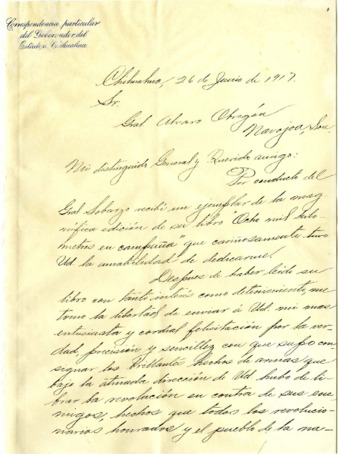 Correspondencia particular
del Gobernador del
Estado de Chihuahua
Chihuahua, 26 de Junio de 1917.
Sr.
Gral Alvaro Obregón
Navojoa, Son
Mi distinguido General y Querido amigo:
Por conducto del
Gral Sobarzo recibí un ejemplar de la mag
nifica edición de su libro "Ocho mil kilo
metros en campaña que cariñosamente tuvo
Ud la amabilidad de dedicarme.
Despues de haber leido su
libro con tanto interés como detenimiento, me
tomo la libertad de enviar á Ud mi mas
entusiasta y cordial felicitación por la ver
dad, precisión y sencillez con que supo con
signar los brillantes hechos de armas que
bajo la atinada dirección de Ud hubo de li
brar la revolución en contra de sus ene
migos, hechos que todos los revolucio
narios honrados y el pueblo de la na-